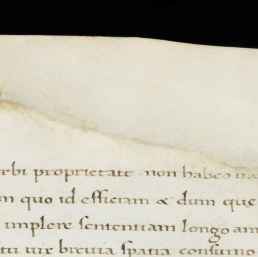 rbi proprietate · non habeo
m quo id efficiam & dum que
implere sententiam longo am
uix breuia spatia consumo